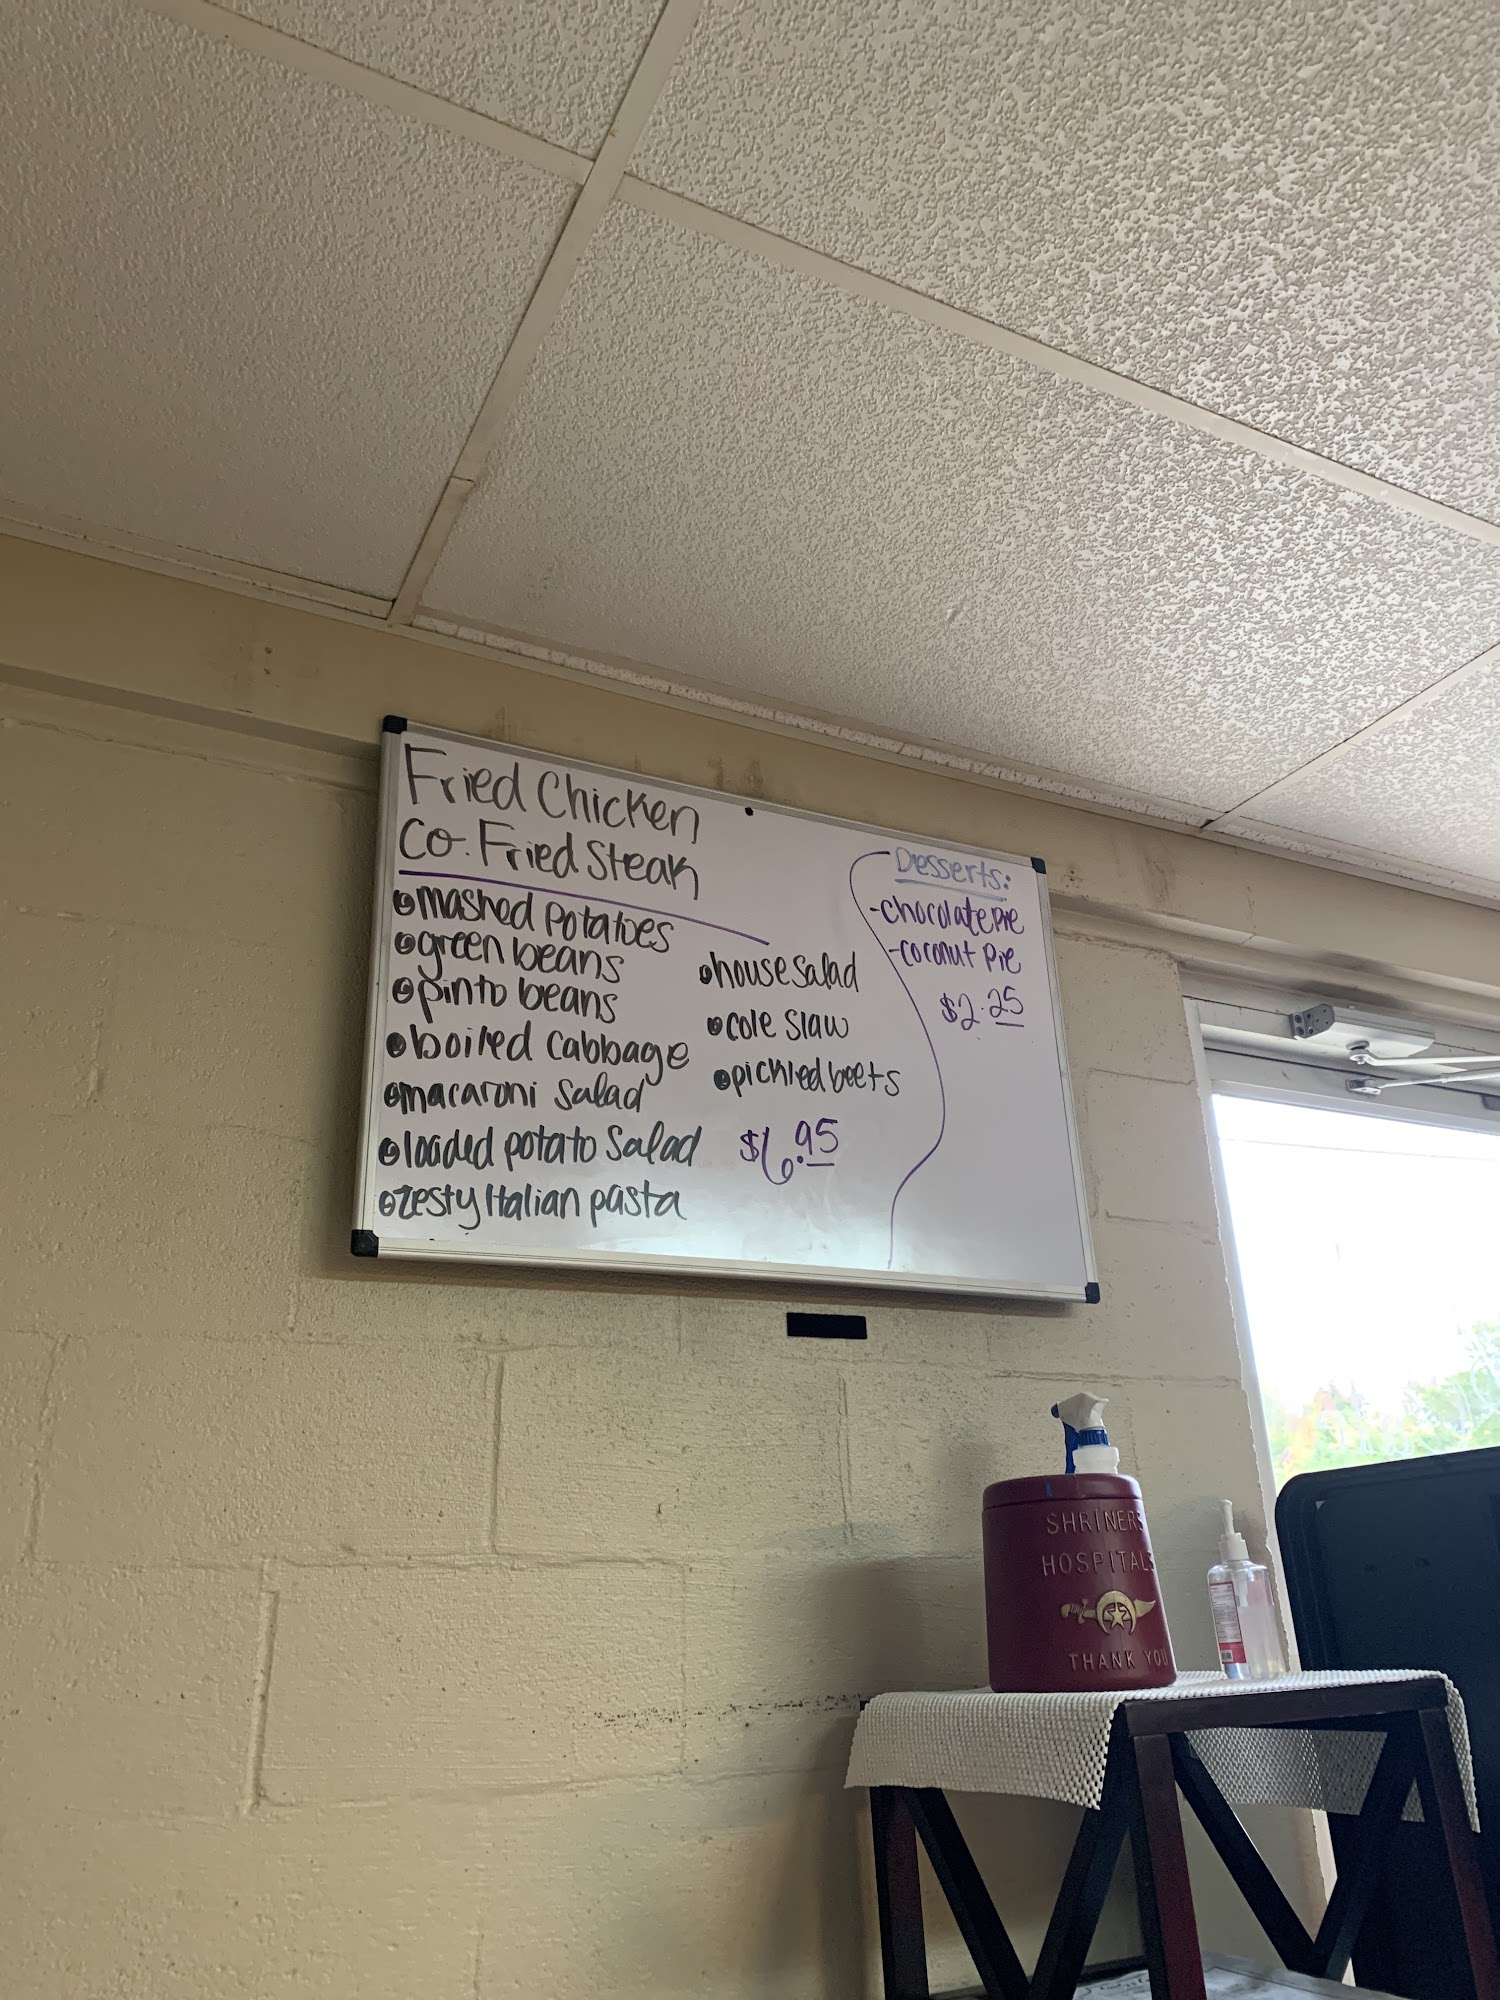 Fried Chicken
Co. Fried Steak
mashed potatoes
green beans
pinto beans
boiled cabbage
macaroni salad
loaded potato salad
zesty Italian pasta
house salad
cole slaw
pickled beets
$6.95
Desserts:
-chocolate pie
-coconut pie
$2.25
SHRINERS
HOSPITALS
THANK YOU